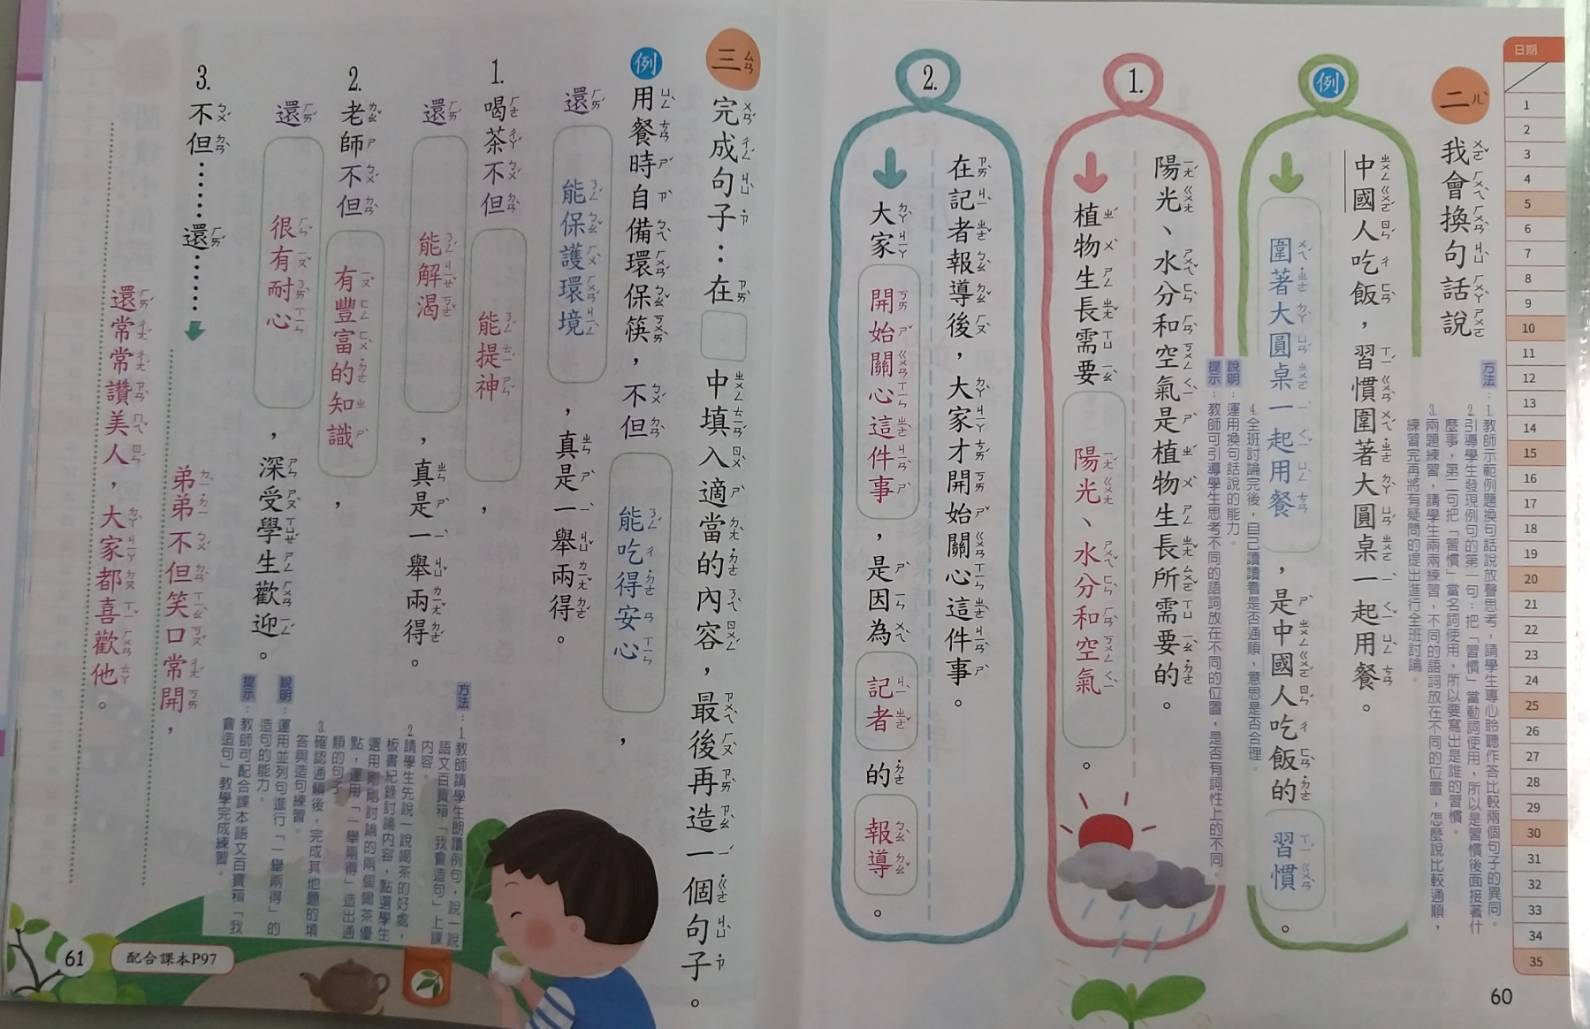 日期
1
2
3
4
5
6
7
8
9
10
11
12
13
14
15
16
17
18
19
20
21
22
23
24
25
26
27
28
29
30
31
32
33
34
35
二 我會換句話說
方法：1.教師示範例題換句話說放聲思考，請學生專心聆聽作答比較兩個句子的異同。
2.引導學生發現例句的第一句：把「習慣」當動詞使用，所以是習慣後面接著什
麼事，第二句把「習慣」當名詞使用，所以要寫出是誰的習慣。
3.兩題練習，請學生兩兩練習，不同的語詞放在不同的位置，怎麼說比較通順，
練習完再將有疑問的提出進行全班討論。
4.全班討論完後，自己讀讀看是否通順，意思是否合理。
說明：運用換句話說的能力。
提示：教師可引導學生思考不同的語詞放在不同的位置，是否有詞性上的不同。
例
中國人吃飯，習慣圍著大圓桌一起用餐。
圍著大圓桌一起用餐，是中國人吃飯的習慣。
1.
陽光、水分和空氣是植物生長所需要的。
植物生長需要陽光、水分和空氣。
2.
在記者報導後，大家才開始關心這件事。
大家開始關心這件事，是因為記者的報導。
60
三 完成句子：在□中填入適當的內容，最後再造一個句子。
例 用餐時自備環保筷，不但能吃得安心，
還能保護環境，真是一舉兩得。
1. 喝茶不但能提神，
還能解渴，真是一舉兩得。
2. 老師不但有豐富的知識，
還很有耐心，深受學生歡迎。
3. 不但……還……
弟弟不但笑口常開，
還常常讚美人，大家都喜歡他。
方法：1.教師請學生朗讀例句，說一說
語文百寶箱「我會造句」上課
內容。
2.請學生先說一說喝茶的好處，
板書紀錄討論內容，點選學生
選用剛剛討論的兩個喝茶優
點，運用「一舉兩得」造出通
順的句子。
3.確認通順後，完成其他題的填
答與造句練習。
說明：運用並列句進行「一舉兩得」的
造句的能力。
提示：教師可配合課本語文百寶箱「我
會造句」教學完成練習。
61
配合課本P97